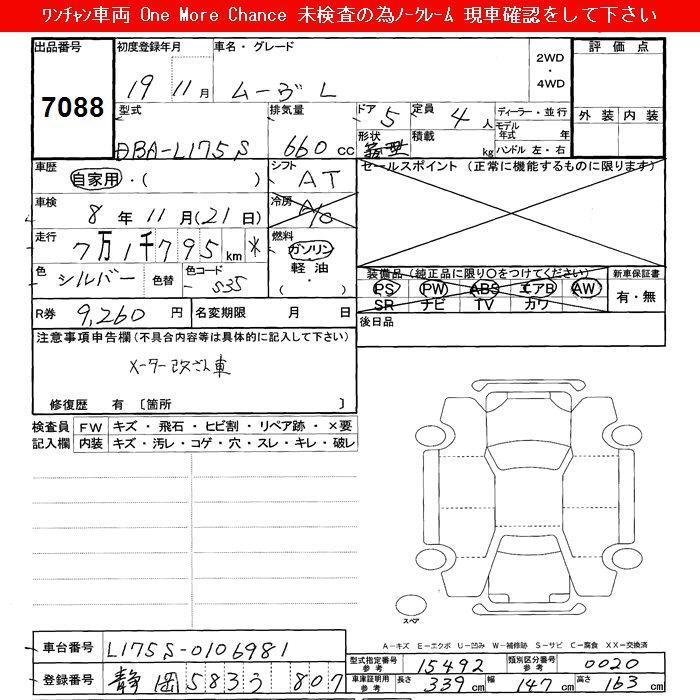 ﾜﾝﾁｬﾝ車両 One More Chance 未検査の為ﾉｰｸﾚｰﾑ 現車確認をして下さい
出品番号 初度登録年月 車名・グレード 評価点
7088 19 11月 ムーヴ L 2WD・4WD
外装 内装
型式 排気量 ドア 5 定員 4人 ディーラー・並行
DBA-L175S 660cc 形状 積載 kg モデル年式 年
ハンドル 左・右
車歴 自家用・( ) シフト AT セールスポイント (正常に機能するものに限ります)
車検 8年11月(21日) 冷房 A/C
走行 7万1千795km * 燃料 ガソリン
軽油
・( )
色 シルバー 色替 色コード S35 装備品(純正品に限り○をつけてください) 新車保証書
PS PW ABS エアB AW 有・無
SR ナビ TV カワ
R券 9,260円 名変期限 月 日 後日品
注意事項申告欄(不具合内容等は具体的に記入して下さい)
メーター改ざん車
修復歴 有 〔箇所 〕
検査員 FW キズ・飛石・ヒビ割・リペア跡・×要
記入欄 内装 キズ・汚レ・コゲ・穴・スレ・キレ・破レ
スペア
A-キズ E-エクボ U-凹み W-補修跡 S-サビ C-腐食 XX-交換済
車台番号 L175S-0106981 型式指定番号 参考 15492 類別区分番号 参考 0020
登録番号 静岡 583 う 807 車庫証明用 参考 長さ 339cm 幅 147cm 高さ 163cm